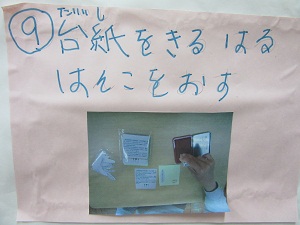 だいし
⑨台紙をきる はる
はんこをおす